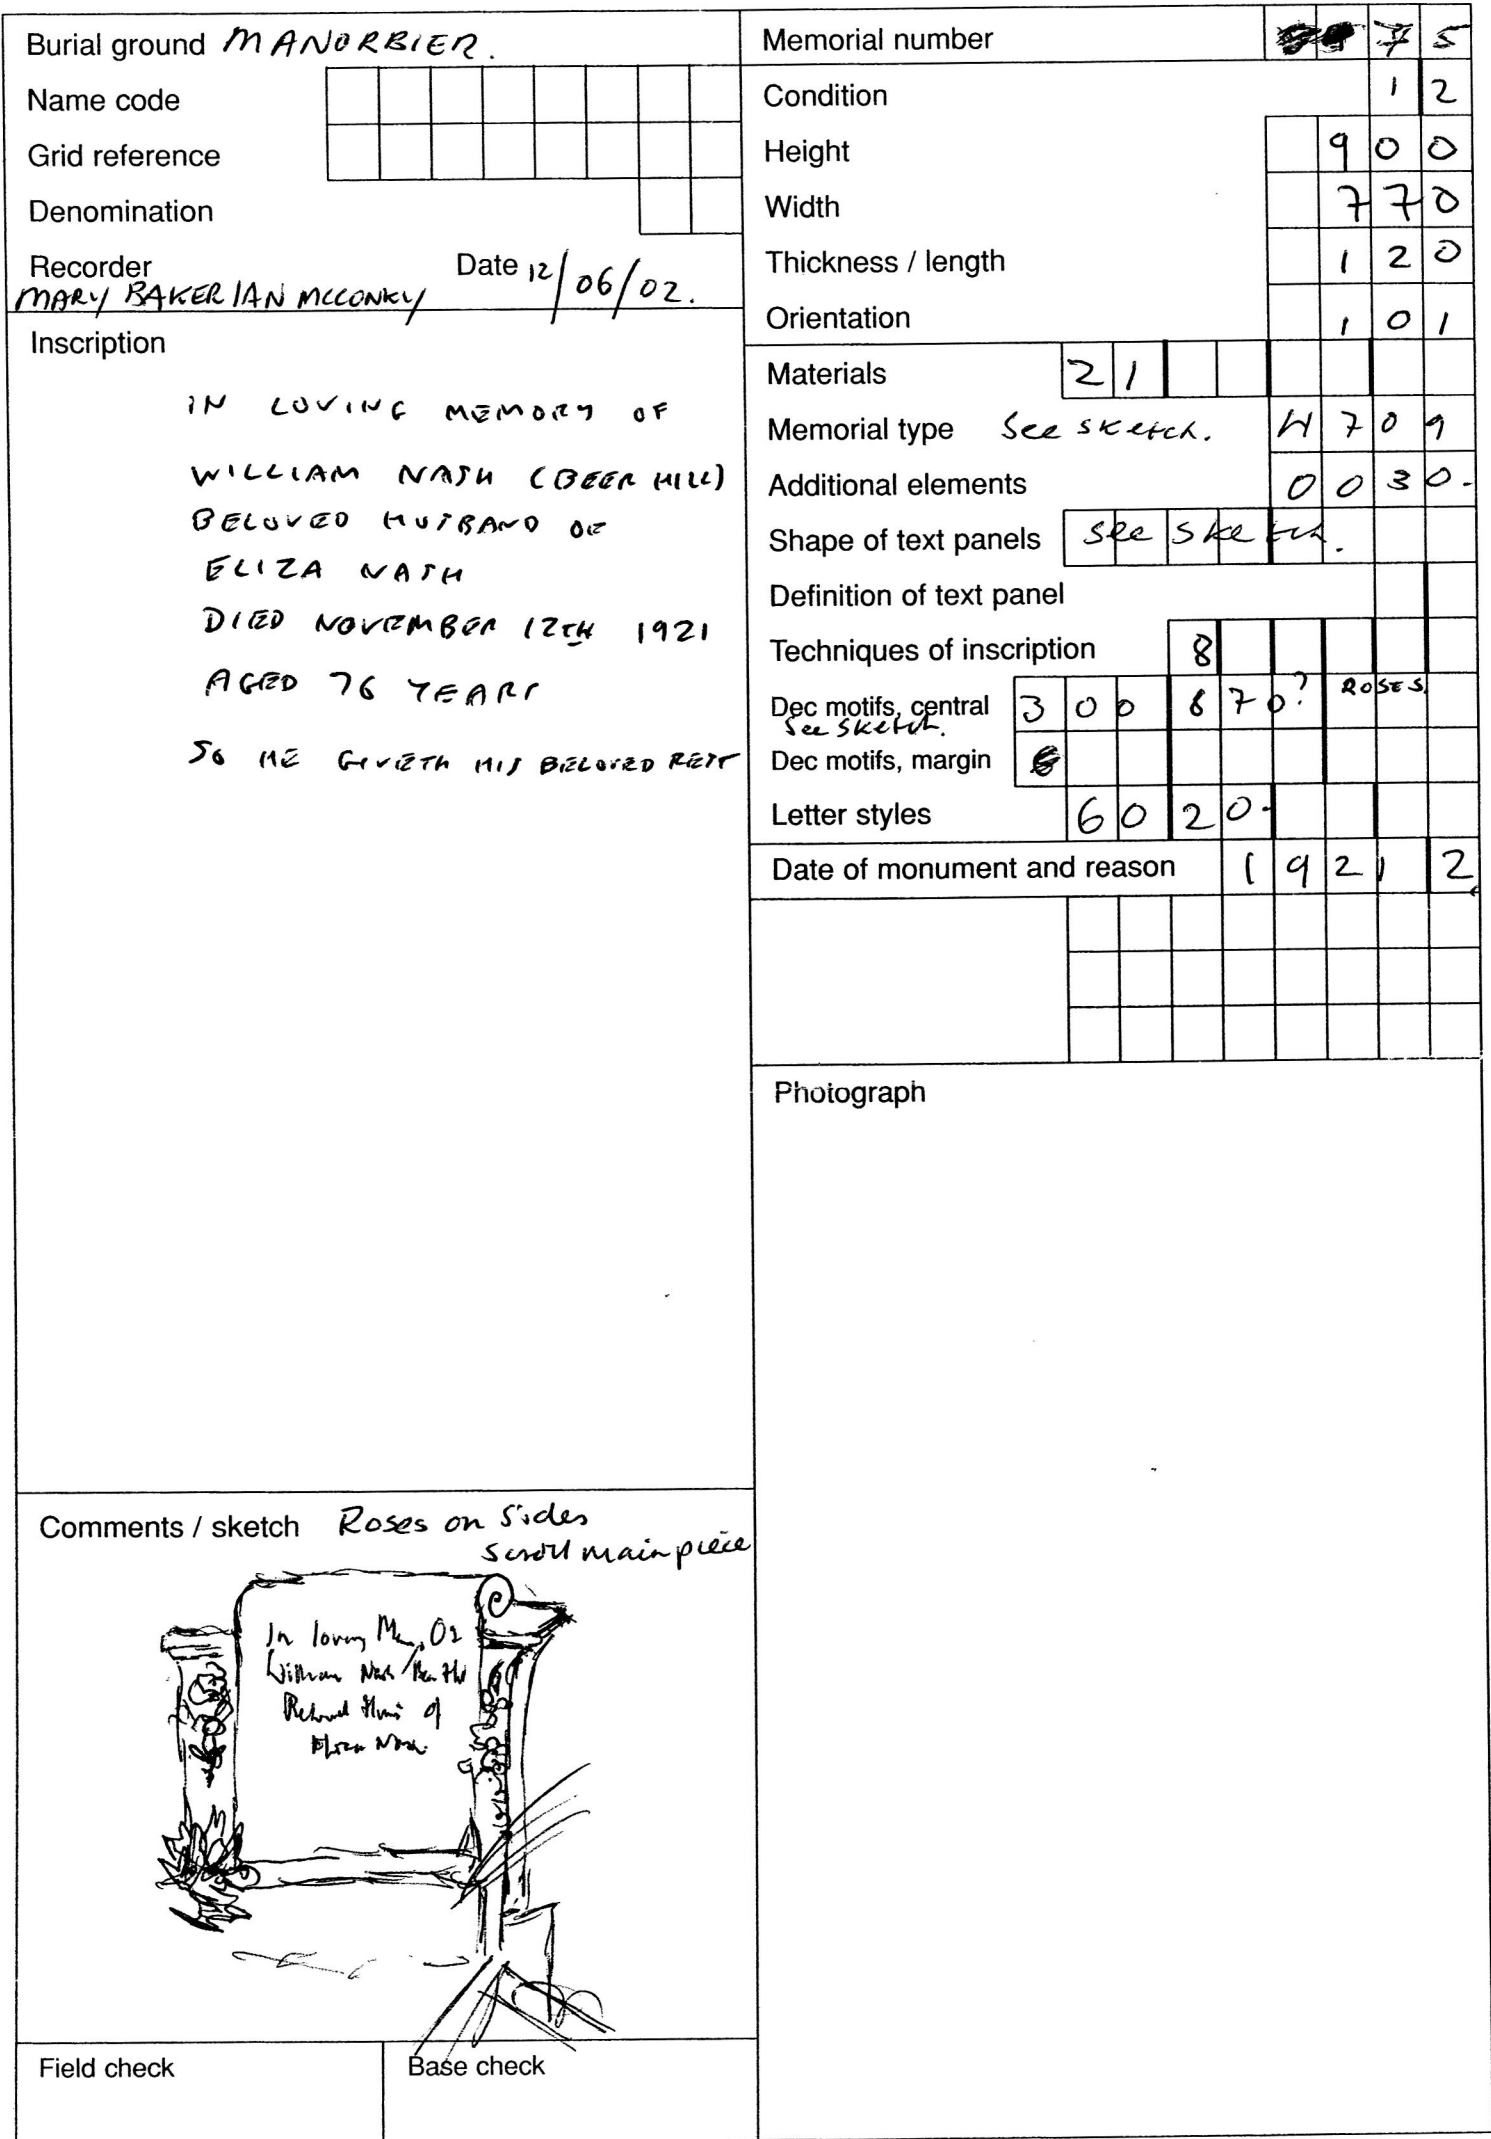 Burial ground MANORBIER.
Name code
Grid reference
Denomination
Recorder Date 12/06/02.
MARY BAKER IAN MCCONKY
Inscription
IN LOVING MEMORY OF
WILLIAM NASH (BEER HILL)
BELOVED HUSBAND OF
ELIZA NASH
DIED NOVEMBER 12TH 1921
AGED 76 YEARS
SO HE GIVETH HIS BELOVED REST
Comments / sketch Roses on Sides
Scroll main piece
In loving Of
William Nash
of
Field check
Base check
Memorial number 75
Condition 12
Height 900
Width 770
Thickness / length 120
Orientation 101
Materials 21
Memorial type See sketch. 4709
Additional elements 0030.
Shape of text panels See sketch.
Definition of text panel
Techniques of inscription 8
Dec motifs, central 300 870? ROSES.
See Sketch.
Dec motifs, margin
Letter styles 60 20.
Date of monument and reason 1921 2
Photograph